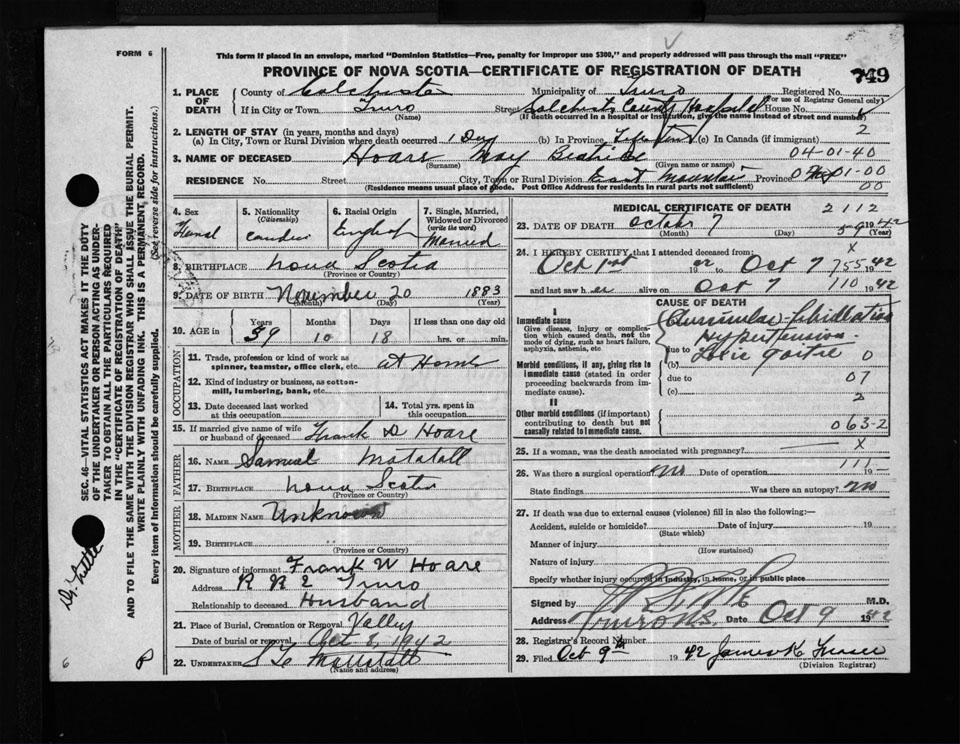 FORM 6
This form if placed in an envelope, marked "Dominion Statistics—Free, penalty for improper use $300," and properly addressed will pass through the mail "FREE"
PROVINCE OF NOVA SCOTIA—CERTIFICATE OF REGISTRATION OF DEATH
749
1. PLACE OF DEATH
County of Colchester Municipality of Truro Registered No.
(For use of Registrar General only)
If in City or Town Truro Street Colchester County Hospital House No.
(Name) (If death occurred in a hospital or institution, give the name instead of street and number)
2
2. LENGTH OF STAY (in years, months and days)
(a) In City, Town or Rural Division where death occurred 1 Day (b) In Province Lifetime (c) In Canada (if immigrant)
3. NAME OF DECEASED Hoare May Beatrice 04-01-40
(Surname) (Given name or names)
RESIDENCE No. Street City, Town or Rural Division East Mountain Province 01-00
(Residence means usual place of abode. Post Office Address for residents in rural parts not sufficient) 00
4. Sex
5. Nationality (Citizenship)
6. Racial Origin English
7. Single, Married, Widowed or Divorced (write the word) Married
8. BIRTHPLACE Nova Scotia
(Province or Country)
9. DATE OF BIRTH November 20 1883
(Month) (Day) (Year)
10. AGE in Years Months Days If less than one day old
10 18 hrs. or min.
OCCUPATION
11. Trade, profession or kind of work as spinner, teamster, office clerk, etc. at Home
12. Kind of industry or business, as cotton-mill, lumbering, bank, etc.
13. Date deceased last worked at this occupation
14. Total yrs. spent in this occupation
15. If married give name of wife or husband of deceased Frank D Hoare
FATHER
16. NAME Samuel Matatall
17. BIRTHPLACE Nova Scotia
(Province or Country)
MOTHER
18. MAIDEN NAME Unknown
19. BIRTHPLACE
(Province or Country)
20. Signature of informant Frank W Hoare
Address R R 2 Truro
Relationship to deceased Husband
21. Place of Burial, Cremation or Removal Valley
Date of burial or removal Oct 8, 1942
22. UNDERTAKER
(Name and address)
MEDICAL CERTIFICATE OF DEATH 2112
23. DATE OF DEATH October 7 1942
(Month) (Day) (Year)
24. I HEREBY CERTIFY, that I attended deceased from: X
Oct 1st 19 42 to Oct 7 755 19 42
and last saw her alive on Oct 7 110 19 42
CAUSE OF DEATH
I
Immediate cause
Give disease, injury or complication which caused death, not the mode of dying, such as heart failure, asphyxia, asthenia, etc.
Auricular Fibrillation
due to Hypertension
Toxic goitre
Morbid conditions, if any, giving rise to immediate cause (stated in order proceeding backwards from immediate cause).
(b) 0
due to 07
(c) 2
II
Other morbid conditions (if important) contributing to death but not causally related to immediate cause.
063-2
25. If a woman, was the death associated with pregnancy? X
111
26. Was there a surgical operation? No Date of operation 19
State findings Was there an autopsy? No
27. If death was due to external causes (violence) fill in also the following:—
Accident, suicide or homicide? Date of injury 19
(State which)
Manner of injury
(How sustained)
Nature of injury
Specify whether injury occurred in industry, in home, or in public place
Signed by M.D.
Address Truro N.S. Date Oct 9 1942
28. Registrar's Record Number
29. Filed Oct 9th 1942 James K
(Division Registrar)
SEC. 46—VITAL STATISTICS ACT MAKES IT THE DUTY
OF THE UNDERTAKER OR PERSON ACTING AS UNDER-
TAKER TO OBTAIN ALL THE PARTICULARS REQUIRED
IN THE "CERTIFICATE OF REGISTRATION OF DEATH"
AND TO FILE THE SAME WITH THE DIVISION REGISTRAR WHO SHALL ISSUE THE BURIAL PERMIT.
WRITE PLAINLY WITH UNFADING INK. THIS IS A PERMANENT, RECORD.
Every item of Information should be carefully supplied. (See reverse side for Instructions.)
6